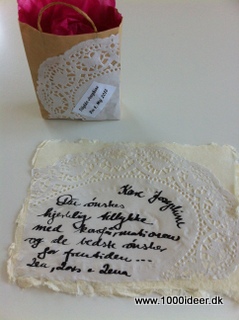 Kære Josephine
Du ønskes
hjertelig tillykke
med konfirmationen
og de bedste ønsker
for fremtiden...
Lars &
www.1000ideer.dk